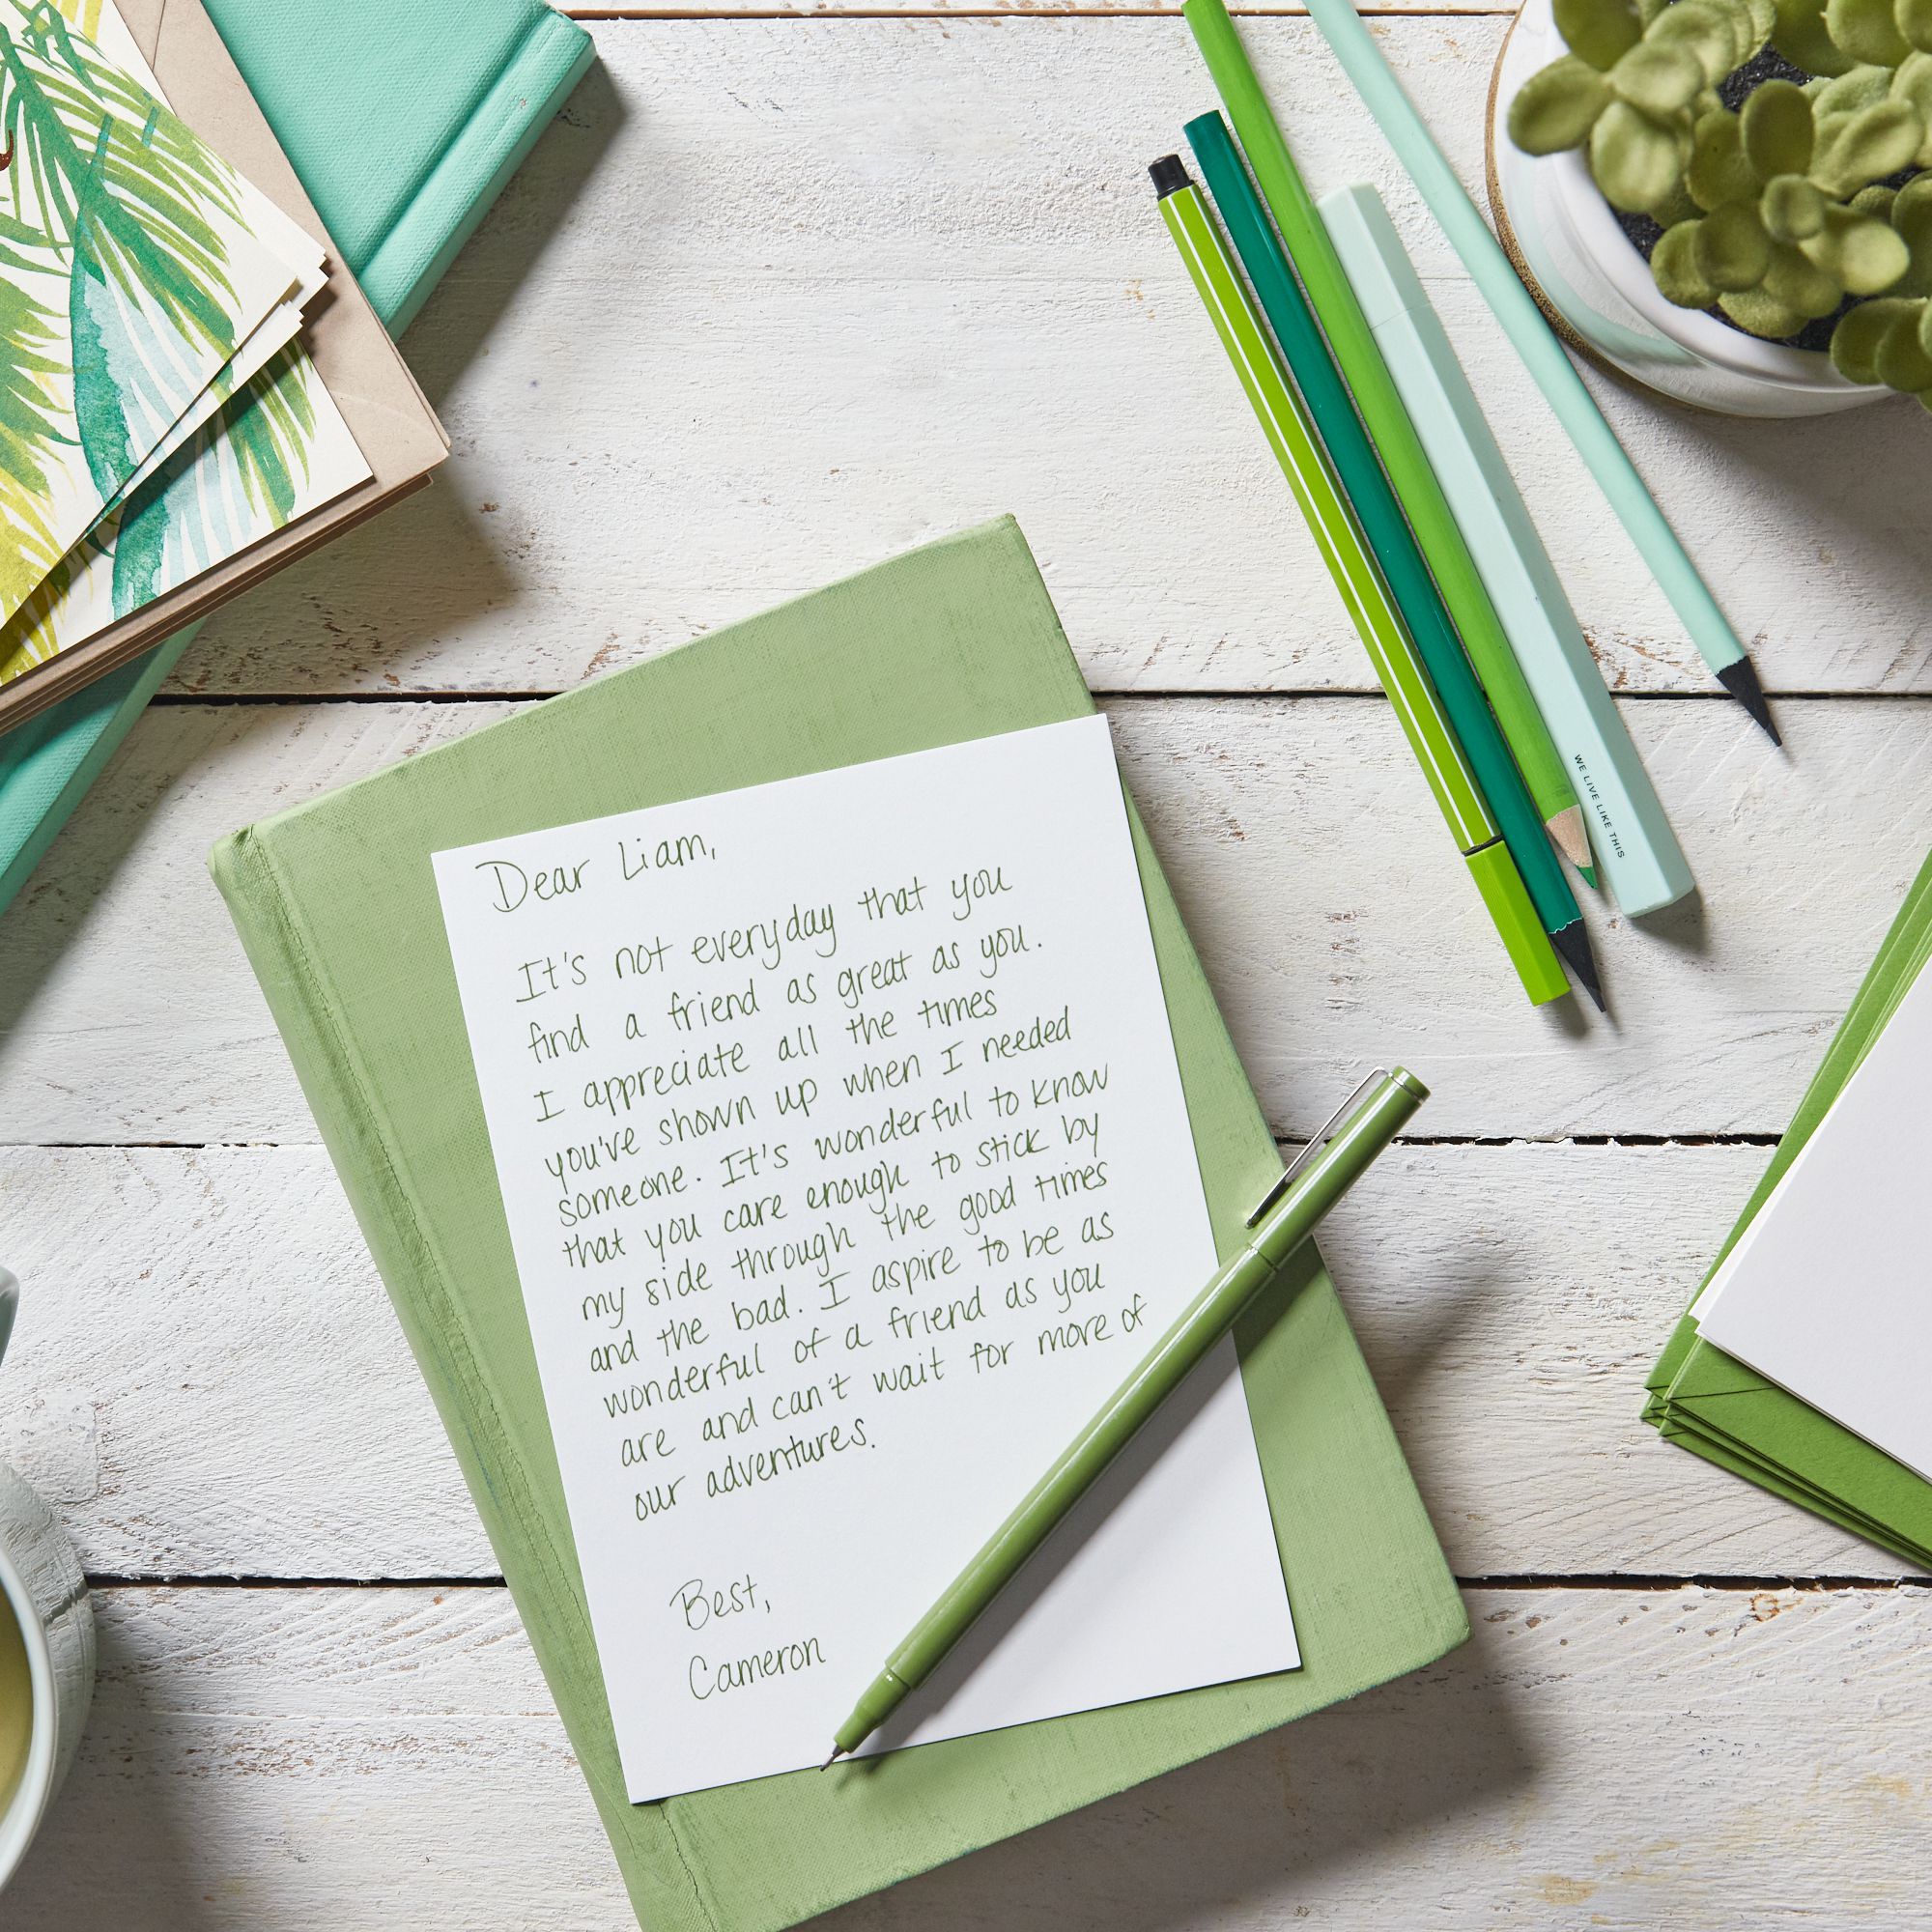 WE LIVE LIKE THIS
Dear Liam,
It's not everyday that you
find a friend as great as you.
I appreciate all the times
you've shown up when I needed
someone. It's wonderful to know
that you care enough to stick by
my side through the good times
and the bad. I aspire to be as
wonderful of a friend as you
are and can't wait for more of
our adventures.
Best,
Cameron